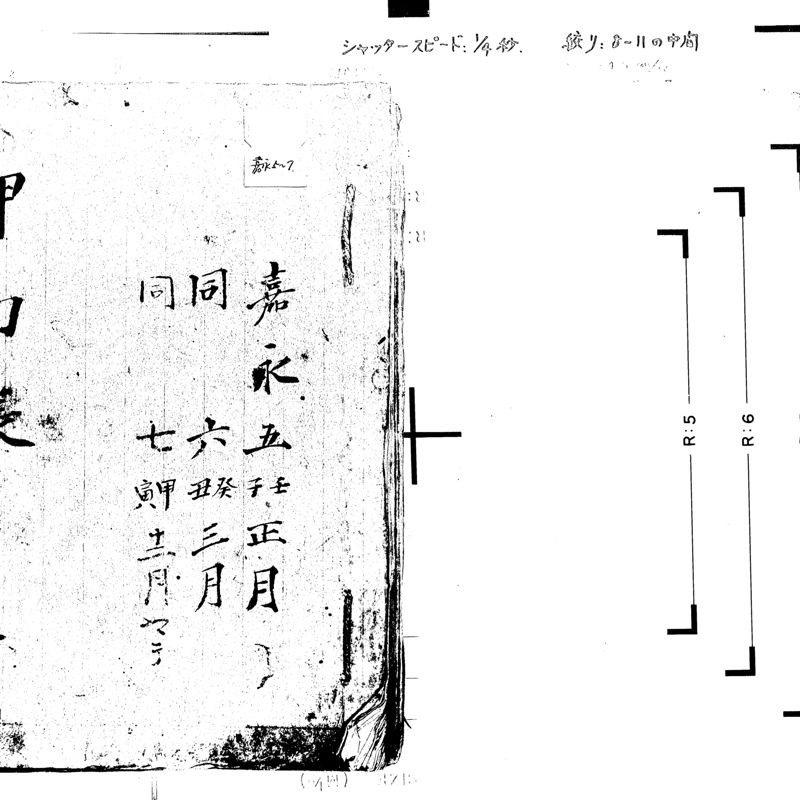 シャッタースピード: 1/4秒. 絞り: 8-11の中間
嘉永5〜7
嘉永五壬子正月
同 六癸丑三月
同 七甲寅十二月マテ
R:5
R:6